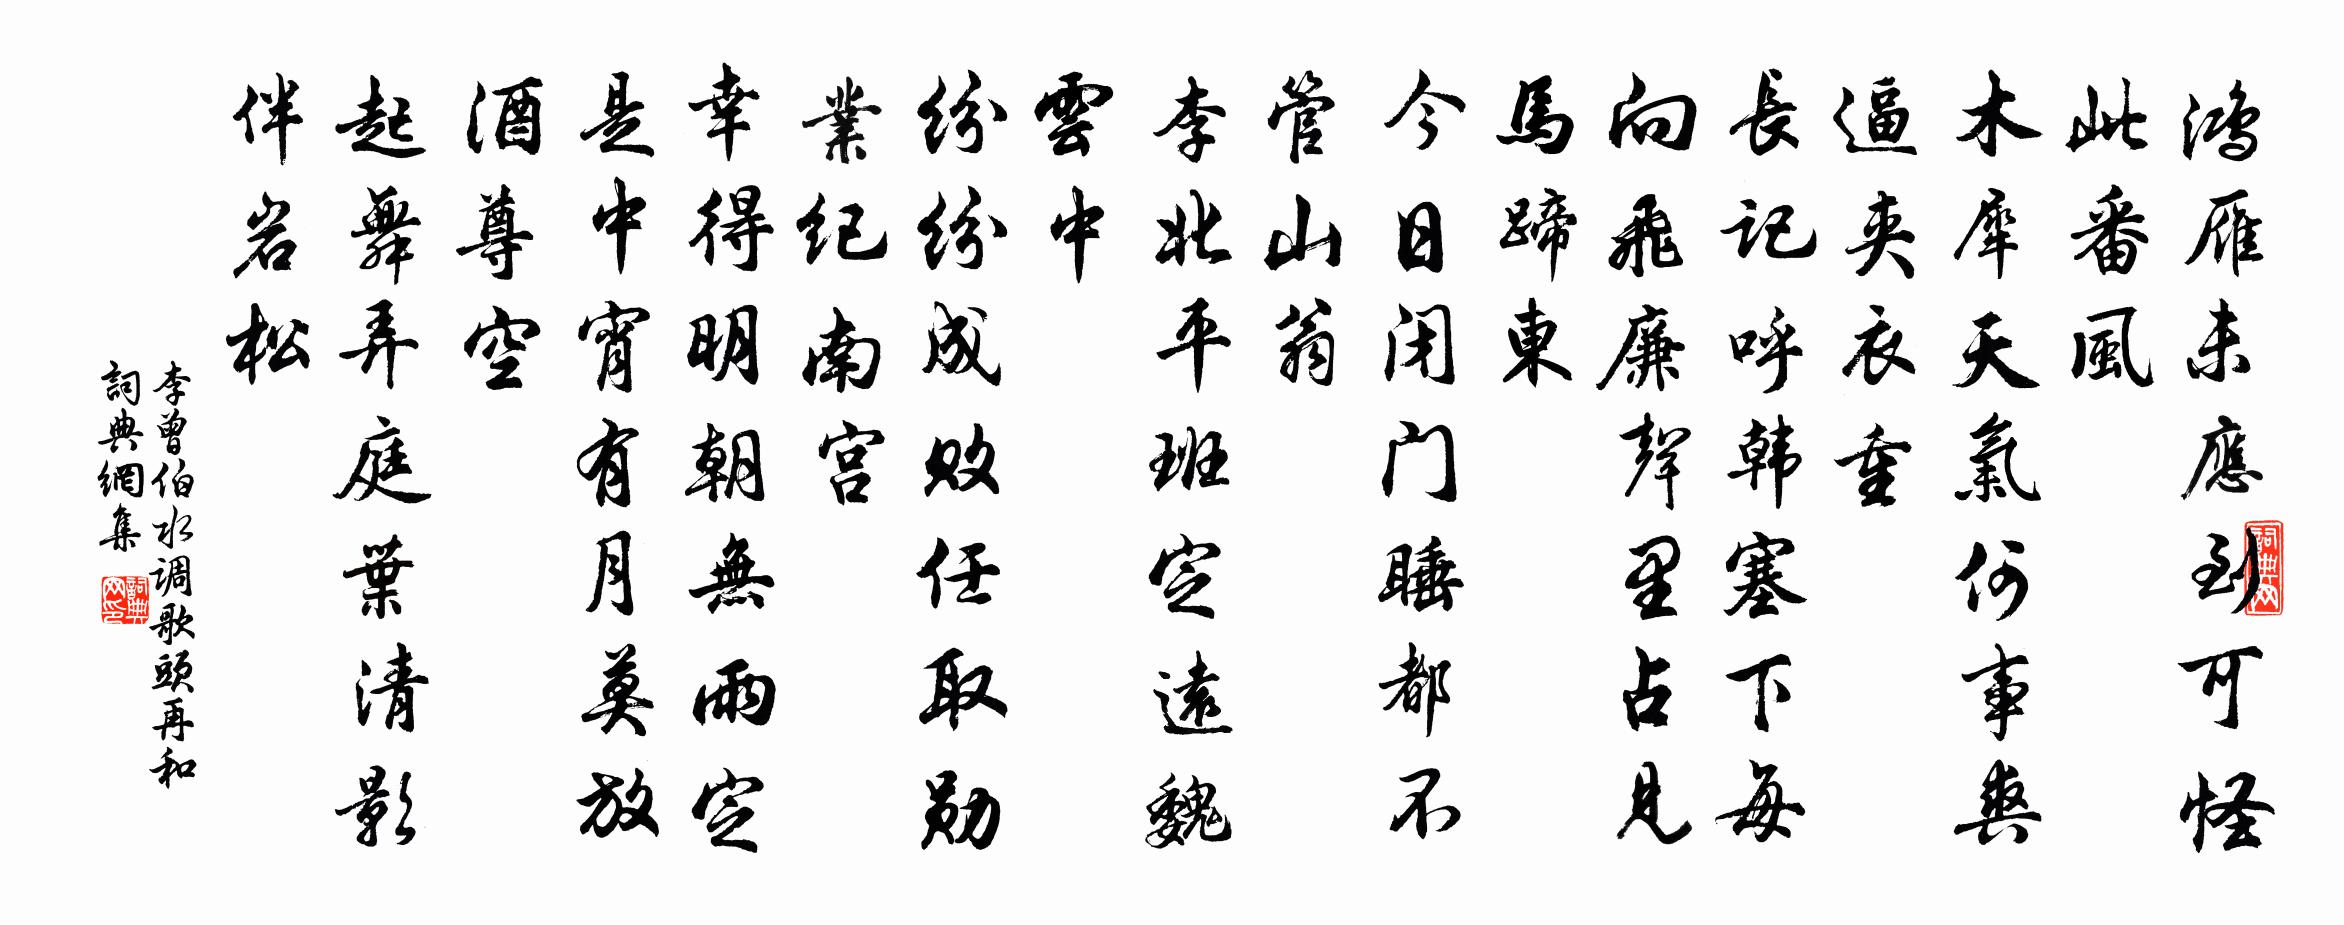 鸿雁未應到可怪
此番風
木犀天氣何事爽
逼夹衣重
長记呼韩塞下每
向飛廉聲里占見
馬蹄東
今日闭门睡都不
管山翁
李北平班定遠魏
雲中
纷纷成败任取勋
業纪南宫
幸得明朝無雨定
是中宵有月莫放
酒尊空
起舞弄庭葉清影
伴岩松
李曾伯水调歌頭再和
詞典網集
詞典网
詞典网印